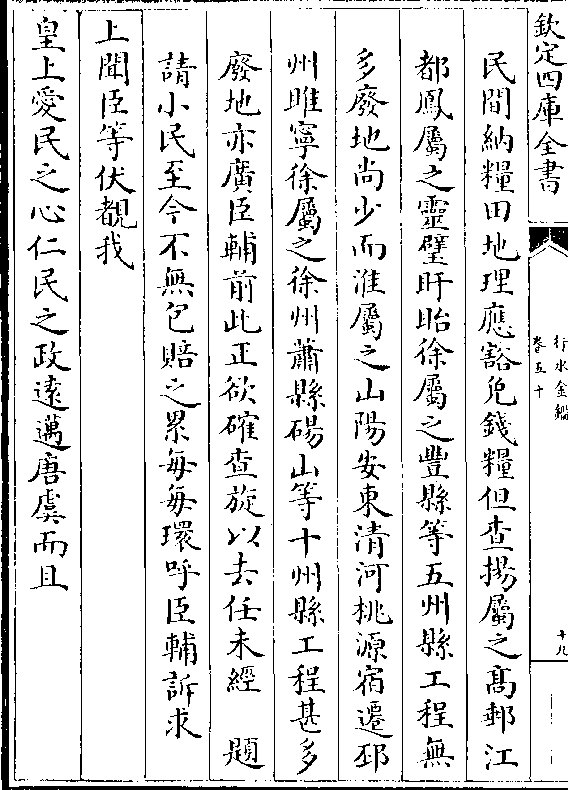 欽定四庫全書
行水金鑑
卷五十
十九
民間納糧田地理應豁免錢糧但查揚屬之髙郵江
都鳳屬之靈璧盱眙徐屬之豐縣等五州縣工程無
多廢地尚少而淮屬之山陽安東清河桃源宿遷邳
州睢寧徐屬之徐州蕭縣碭山等十州縣工程甚多
廢地亦廣臣輔前此正欲確查旋以去任未經 題
請小民至今不無包賠之累每每環呼臣輔訴求
上聞臣等伏覩我
皇上愛民之心仁民之政遠邁唐虞而且